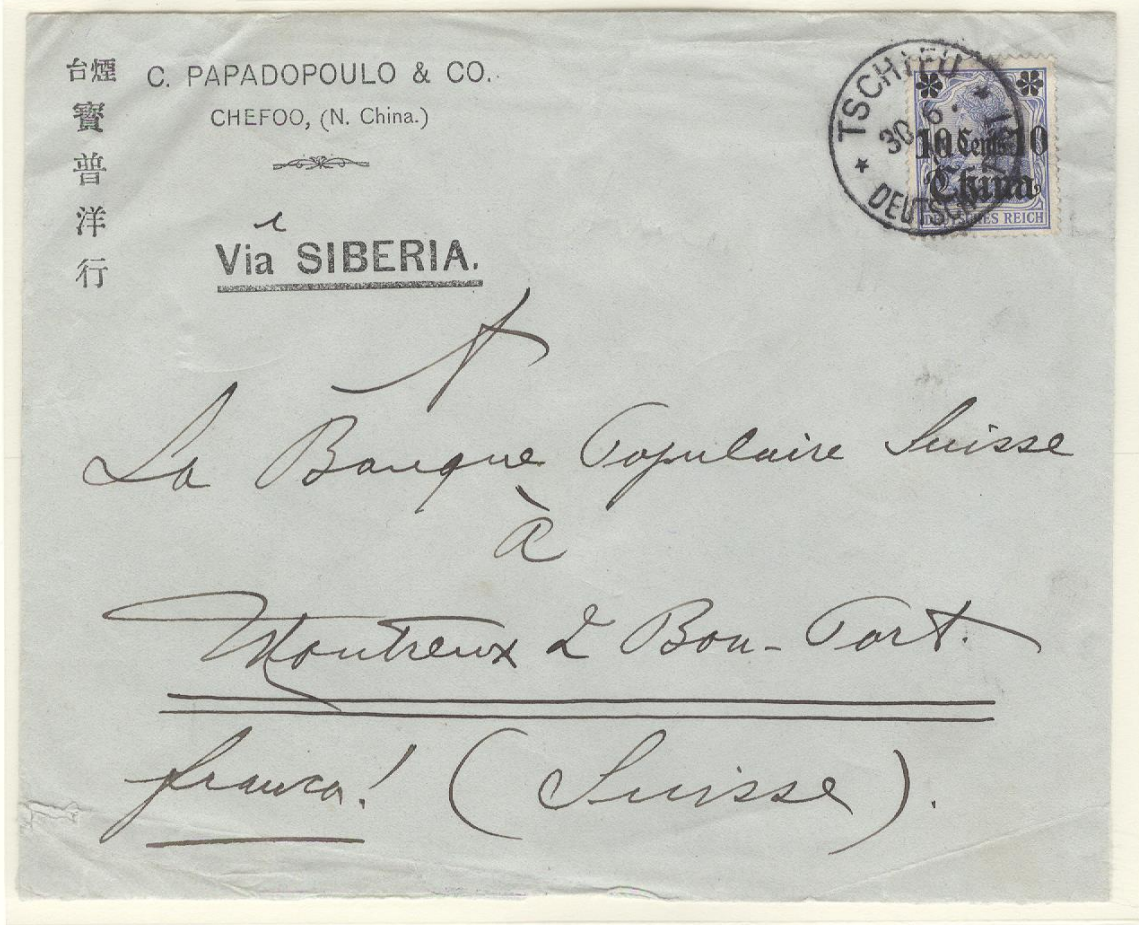 煙台
寶普洋行
C. PAPADOPOULO & CO.
CHEFOO, (N. China.)
Via SIBERIA.
TSCHIFU
30 6
DEUTSCHE
10 Cents 10
China
DEUTSCHES REICH
La Banque Populaire Suisse
à
Montreux 2 Bon-Port.
franco! (Suisse).